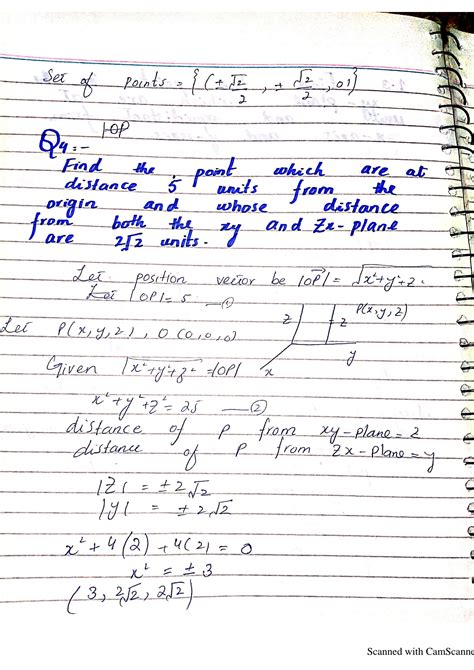 Set of points = { (± √2/2, ± √2/2, 0) }
|OP
Q4:-
Find the point which are at
distance 5 units from the
origin and whose distance
from both the xy and Zx-plane
are 2√2 units.
Let position vector be |OP| = √x²+y²+z.
Let |OP| = 5 —①
Let P(x,y,z), O (0,0,0)
z z P(x,y,z)
x y
Given √x²+y²+z² = |OP|
x²+y²+z² = 25 —②
distance of P from xy-plane = z
distance of P from zx-plane = y
|Z| = ± 2√2
|y| = ± 2√2
x² + 4(2) + 4(2) = 0
x² = ± 3
(3, 2√2, 2√2)
Scanned with CamScanne